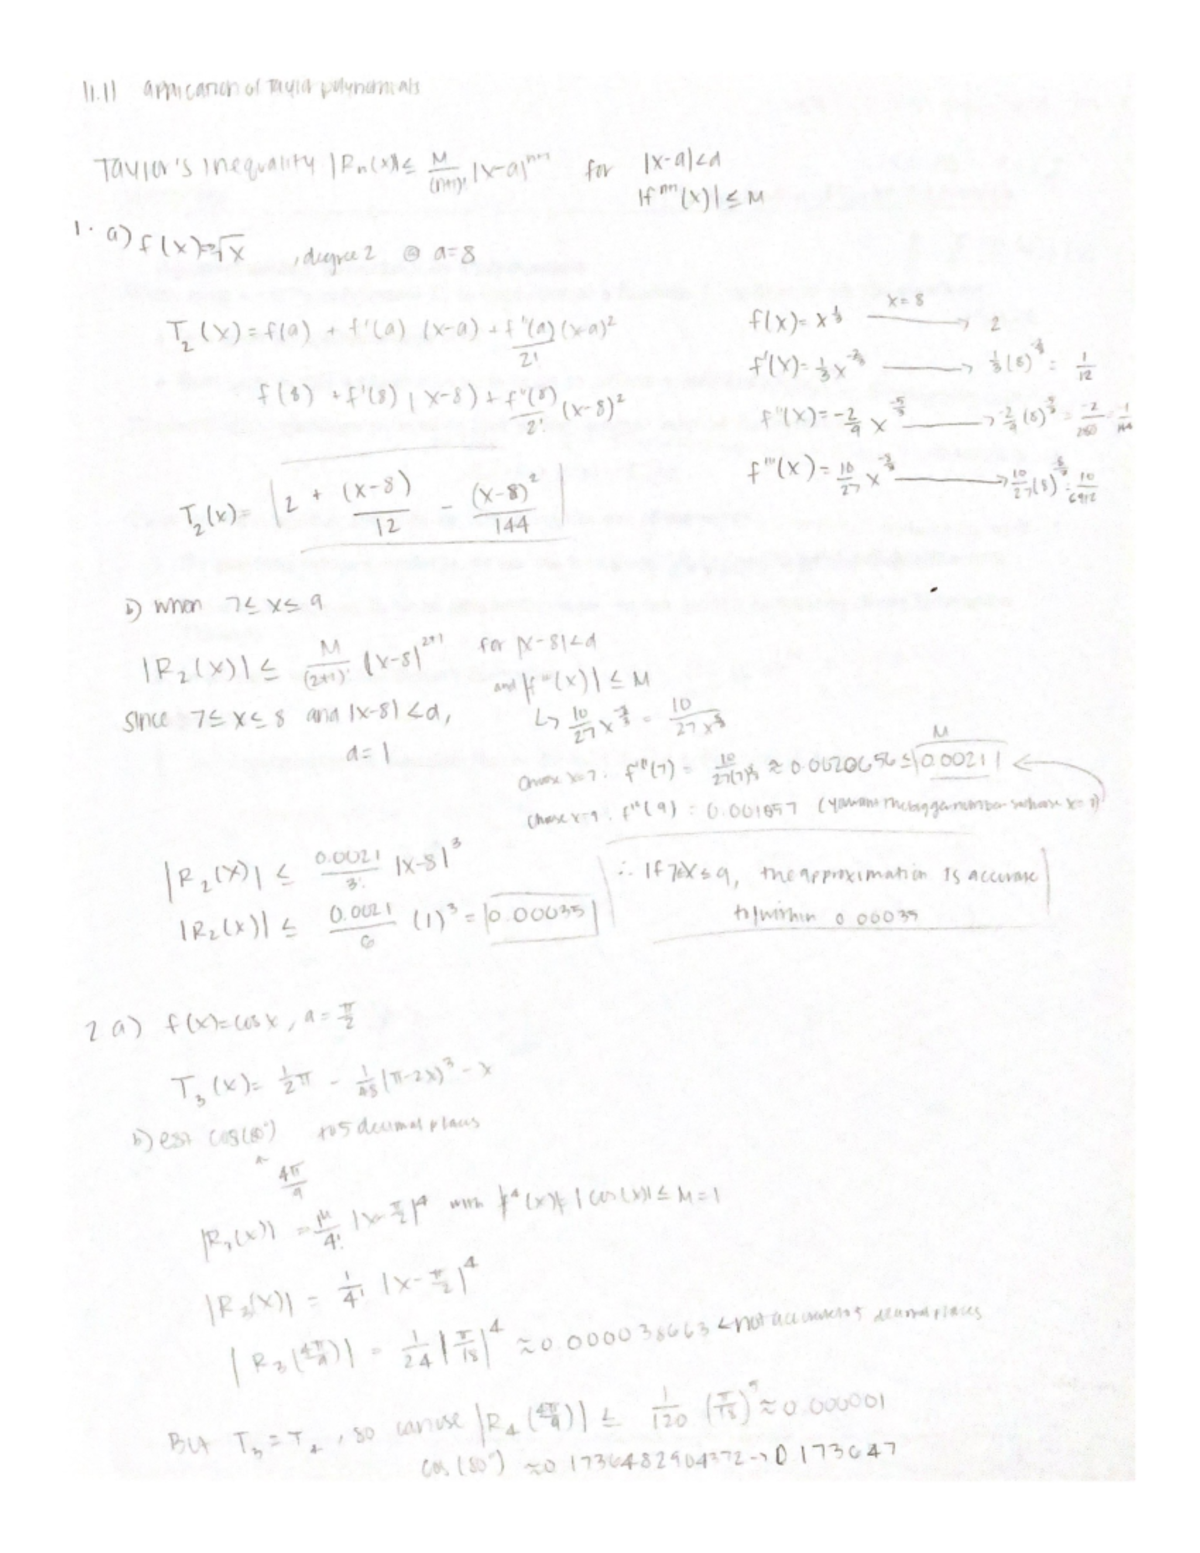 11.11 application of Taylor polynomials
Taylor's Inequality |Rn(x)| ≤ M/(n+1)! |x-a|^n+1 for |x-a|<d
|f^n+1(x)| ≤ M
1. a) f(x)=∛x , degree 2 @ a=8
T₂(x) = f(a) + f'(a) (x-a) + f''(a)/2! (x-a)²
f(x) = x^1/3 → x=8 2
f'(x) = 1/3 x^-2/3 → 1/3 (8)^-2/3 = 1/12
f(8) + f'(8) (x-8) + f''(8)/2! (x-8)²
f''(x) = -2/9 x^-5/3 → -2/9 (8)^-5/3 = -2/288 = -1/144
f'''(x) = 10/27 x^-8/3 → 10/27 (8)^-8/3 = 10/6912
T₂(x) = 2 + (x-8)/12 - (x-8)²/144
b) when 7 ≤ x ≤ 9
|R₂(x)| ≤ M/(2+1)! |x-8|^2+1 for |x-8|<d
and |f'''(x)| ≤ M
since 7 ≤ x ≤ 8 and |x-8| < d,
↳ 10/27 x^-8/3 = 10/27x^8/3
d = 1
M
choose x=7: f'''(7) = 10/27(7)^8/3 ≈ 0.0020656 ≤ 0.0021
choose x=9: f'''(9) = 0.001057 (you want the bigger number so choose x=7)
|R₂(x)| ≤ 0.0021/3! |x-8|³
∴ If 7≤x≤9, the approximation is accurate
|R₂(x)| ≤ 0.0021/6 (1)³ = 0.00035
to/within 0.00035
2 a) f(x)=cos x, a = π/2
T₃(x) = 1/2 π - 1/48 (π-2x)³ - x
b) est cos(80°) to 5 decimal places
4π/9
|R₃(x)| = M/4! |x-π/2|⁴ with f⁴(x) = |cos(x)| ≤ M=1
|R₃(x)| = 1/4! |x-π/2|⁴
|R₃(4π/9)| = 1/24 |π/18|⁴ ≈ 0.000038663 ← not accurate to 5 decimal places
But T₃=T₄, so can use |R₄(4π/9)| ≤ 1/120 (π/18)⁵ ≈ 0.000001
cos(80°) ≈ 0.1736482904372 → 0.173647